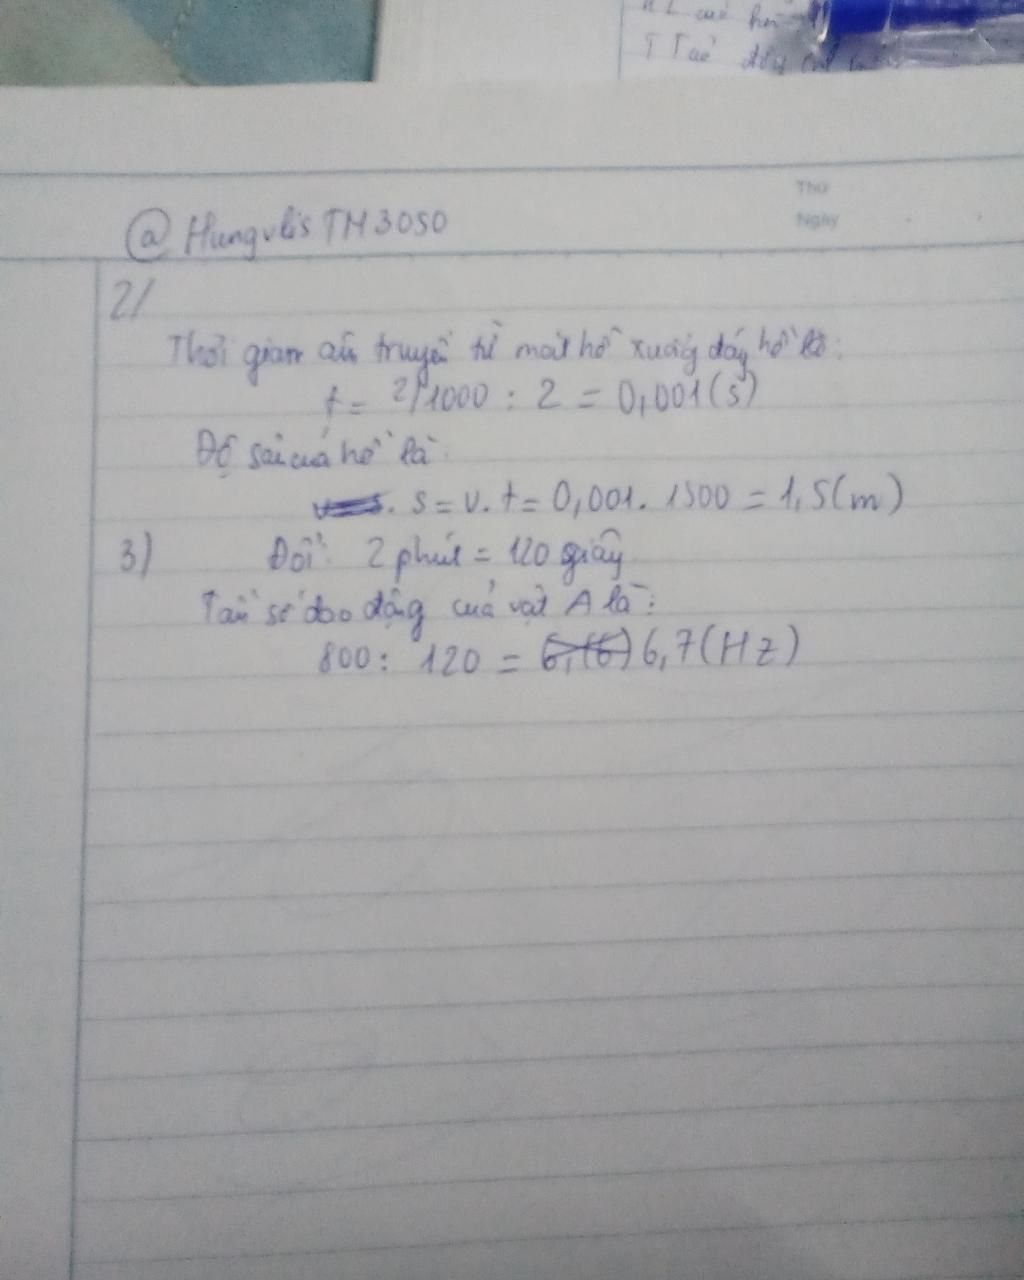 TTaà
Thứ
Ngày
@ HungvlisTM3050
2/
Thời gian âm truyền từ mặt hồ xuống đáy hồ là:
t = 2/1000 : 2 = 0,001(s)
Độ sâu của hồ là:
s = v.t = 0,001. 1500 = 1,5(m)
3) Đổi: 2 phút = 120 giây
Tần số dao động của vật A là:
800 : 120 = 6,7(Hz)